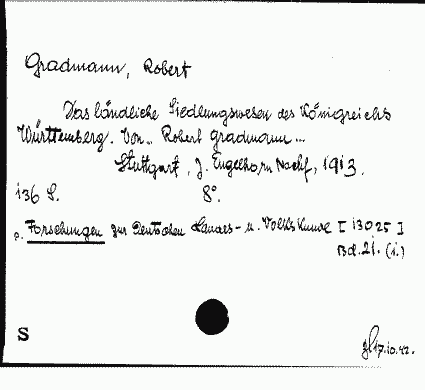 Gradmann, Robert
Das ländliche Siedlungswesen des Königreichs
Württemberg. Von.. Robert Gradmann...
Stuttgart, J. Engelhorn Nachf, 1913.
136 S. 8°.
p. Forschungen zur Deutschen Landes- u. Volkskunde [13025]
Bd.21. (1.)
S
17.10.42.